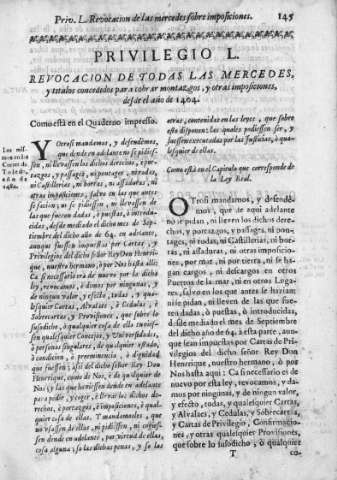 Priv. L. Revocacion de las mercedes sobre imposiciones. 145
PRIVILEGIO L.
REVOCACION DE TODAS LAS MERCEDES,
y titulos concedidos para cobrar montazgos, y otras imposiciones,
desde el año de 1464.
Como está en el Quaderno impresso.
de Toledo,
año de
1480.
Y Otrosi mandamos, y defendemos,
que desde en adelante no se pidiessen,
ni llevassen los dichos derechos, e portazgos,
y passages, ni pontages, ni rodas,
ni Castillerias, ni borras, ni assaduras, ni
otras imposiciones, salvo en las que antes
las que fueron dadas, ò puestas, è introducidas,
desde mediado el dicho mes de Septiembre
del dicho año de 64. en adelante,
aunque fuessen impuestas por Cartas, y
Privilegios del dicho señor Rey Don Henrique,
nuestro hermano, ò por Nos hasta alli:
Ca si necessario era de nuevo por la dicha
ley, revocamos, è dimos por ningunas, y
de ningun valor, y efecto, todas, y qualesquier
Cartas, è Alvalaes, è Cedulas, è
Sobrecartas, y Provisiones, que sobre lo
susodicho, ò qualquier cosa de ello
qualesquier Concejos, y Universidades,
è personas singulares, de qualquier estado,
ò condicion, è preeminencia, ò dignidad
que fuessen; assi del dicho señor Rey Don
Henrique, como de Nos, è de qualquier de
Nos; y las que hoviessen dende en adelante
para pedir, y coger, è llevar los dichos derechos,
è portazgos, è imposiciones, ò qualquier
cosa de ellas. Y mandamosles, que
no usassen de ellas, ni pidiessen, ni cogiessen
dende en adelante, por virtud de ellas,
cosa alguna, so las dichas penas, y so las
otras, contenidas en las leyes, que sobre
esto disponen: las quales pidiessen ser, y
fuessen executadas por las susodichas, ò qualesquier
de ellas.
Como está en el Capitulo que corresponde de
la Ley Real.
OTrosi mandamos, y defendemos,
que de aqui adelante
no se pidan, ni lleven los dichos derechos,
y portazgos, y passages, ni pontages,
ni rodas, ni Castillerias, ni borras,
ni assaduras, ni otras imposiciones,
por mar, ni por tierra, ni se hagan
cargos, ni descargos en otros
Puertos de la mar, ni en otros Lugares,
salvo en los que antes se hacian:
ni se pidan, ni lleven de las que fueren
dadas, ò puestas, ò introducidas,
desde mediado el mes de Septiembre
del dicho año de 64. à esta parte, aunque
sean impuestas por Cartas de Privilegios
del dicho señor Rey Don
Henrique, nuestro hermano, ò por
Nos hasta aqui: Ca si necessario es de
nuevo por esta ley, revocamos, y damos
por ningunas, y de ningun valor,
y efecto, todas, y qualesquier Cartas,
y Alvalaes, y Cedulas, y Sobrecarta,
y Cartas de Privilegio, Confirmaciones,
y otras qualesquier Provisiones,
que sobre lo susodicho, ò qualquier
T co-